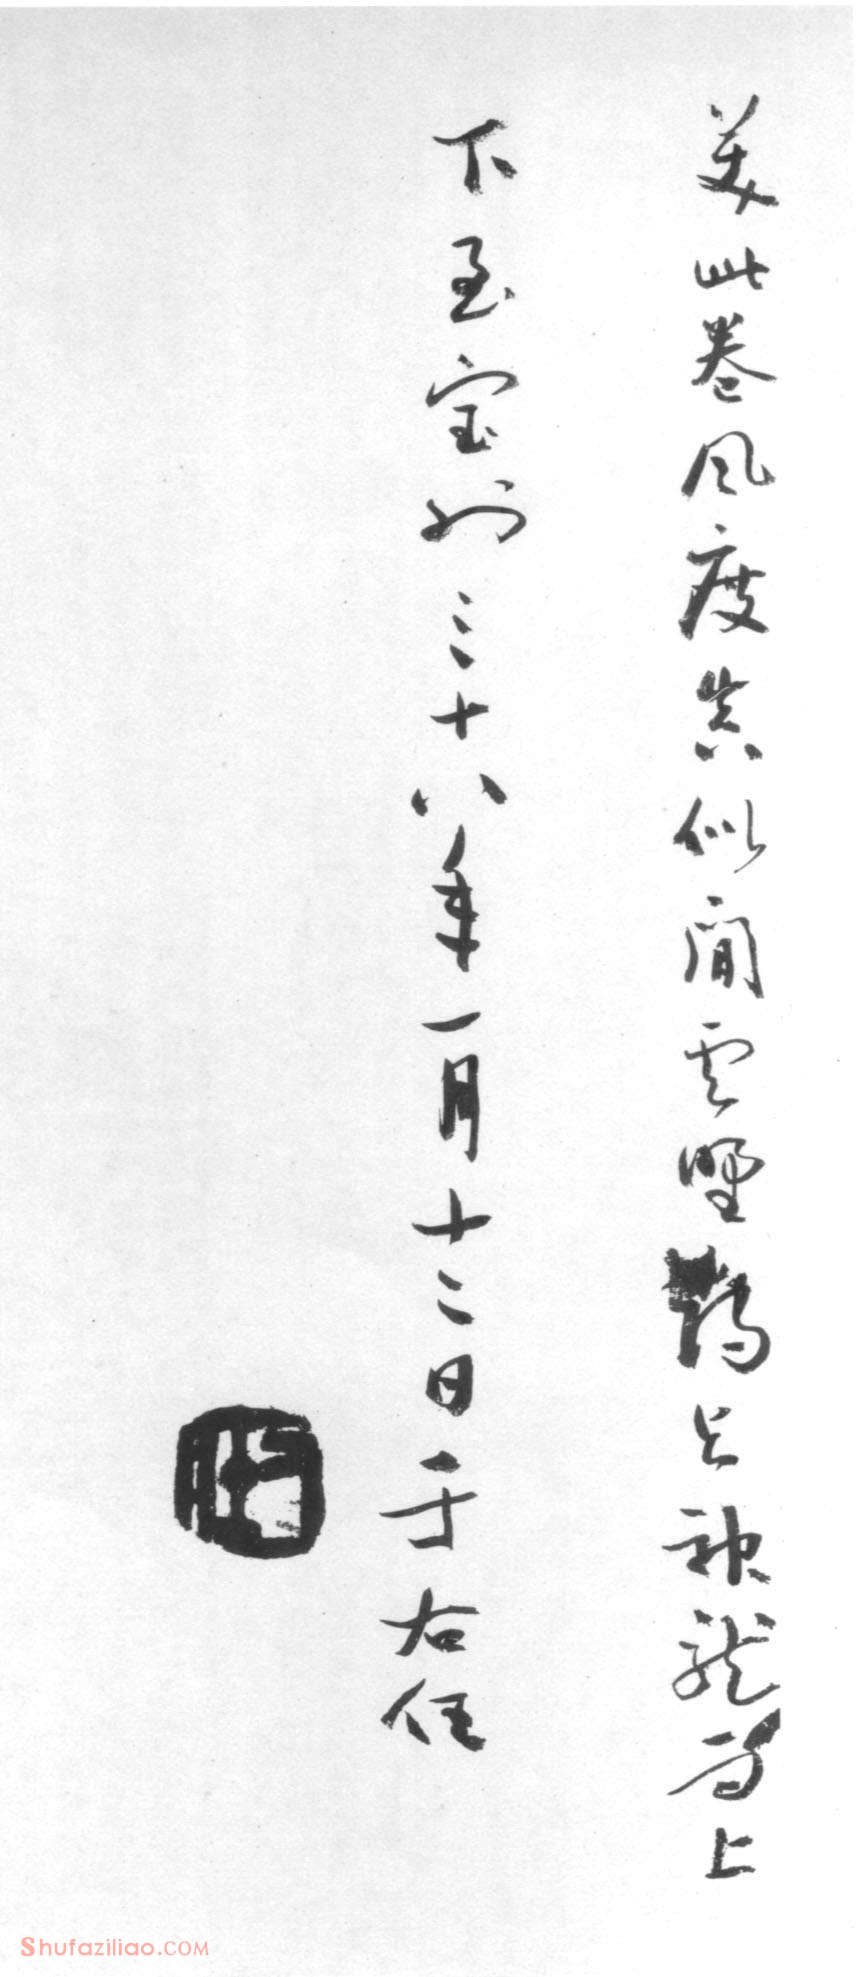 美此卷風度真似閒雲野鶴與神龍上
下至寶三十八年一月十二日于右任
Shufaziliao.COM